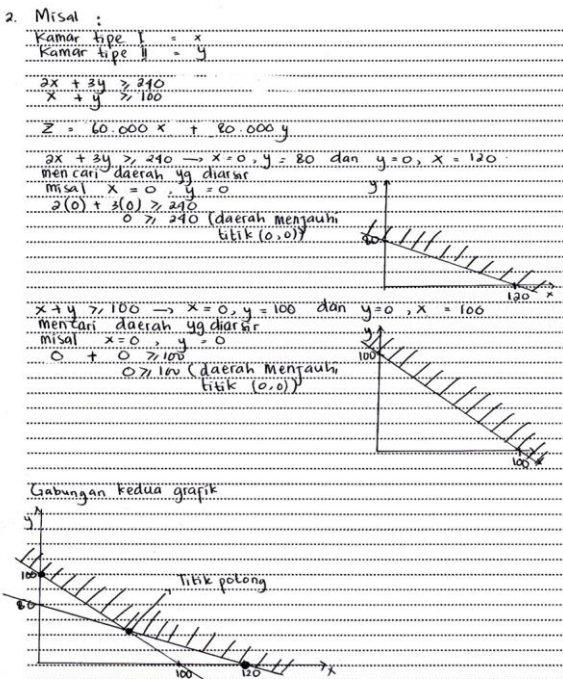 2. Misal :
Kamar tipe I = x
Kamar tipe II = y
2x + 3y ≥ 240
x + y ≥ 100
Z = 60.000 x + 80.000 y
2x + 3y ≥ 240 → x = 0, y = 80 dan y = 0, x = 120
mencari daerah yg diarsir
misal x = 0, y = 0
2(0) + 3(0) ≥ 240
0 ≥ 240 (daerah menjauhi
titik (0,0))
y
80
120
x
x + y ≥ 100 → x = 0, y = 100 dan y = 0, x = 100
mencari daerah yg diarsir
misal x = 0, y = 0
0 + 0 ≥ 100
0 ≥ 100 (daerah menjauhi
titik (0,0))
y
100
100
x
Gabungan kedua grafik
y
100
Titik potong
80
100
120
x